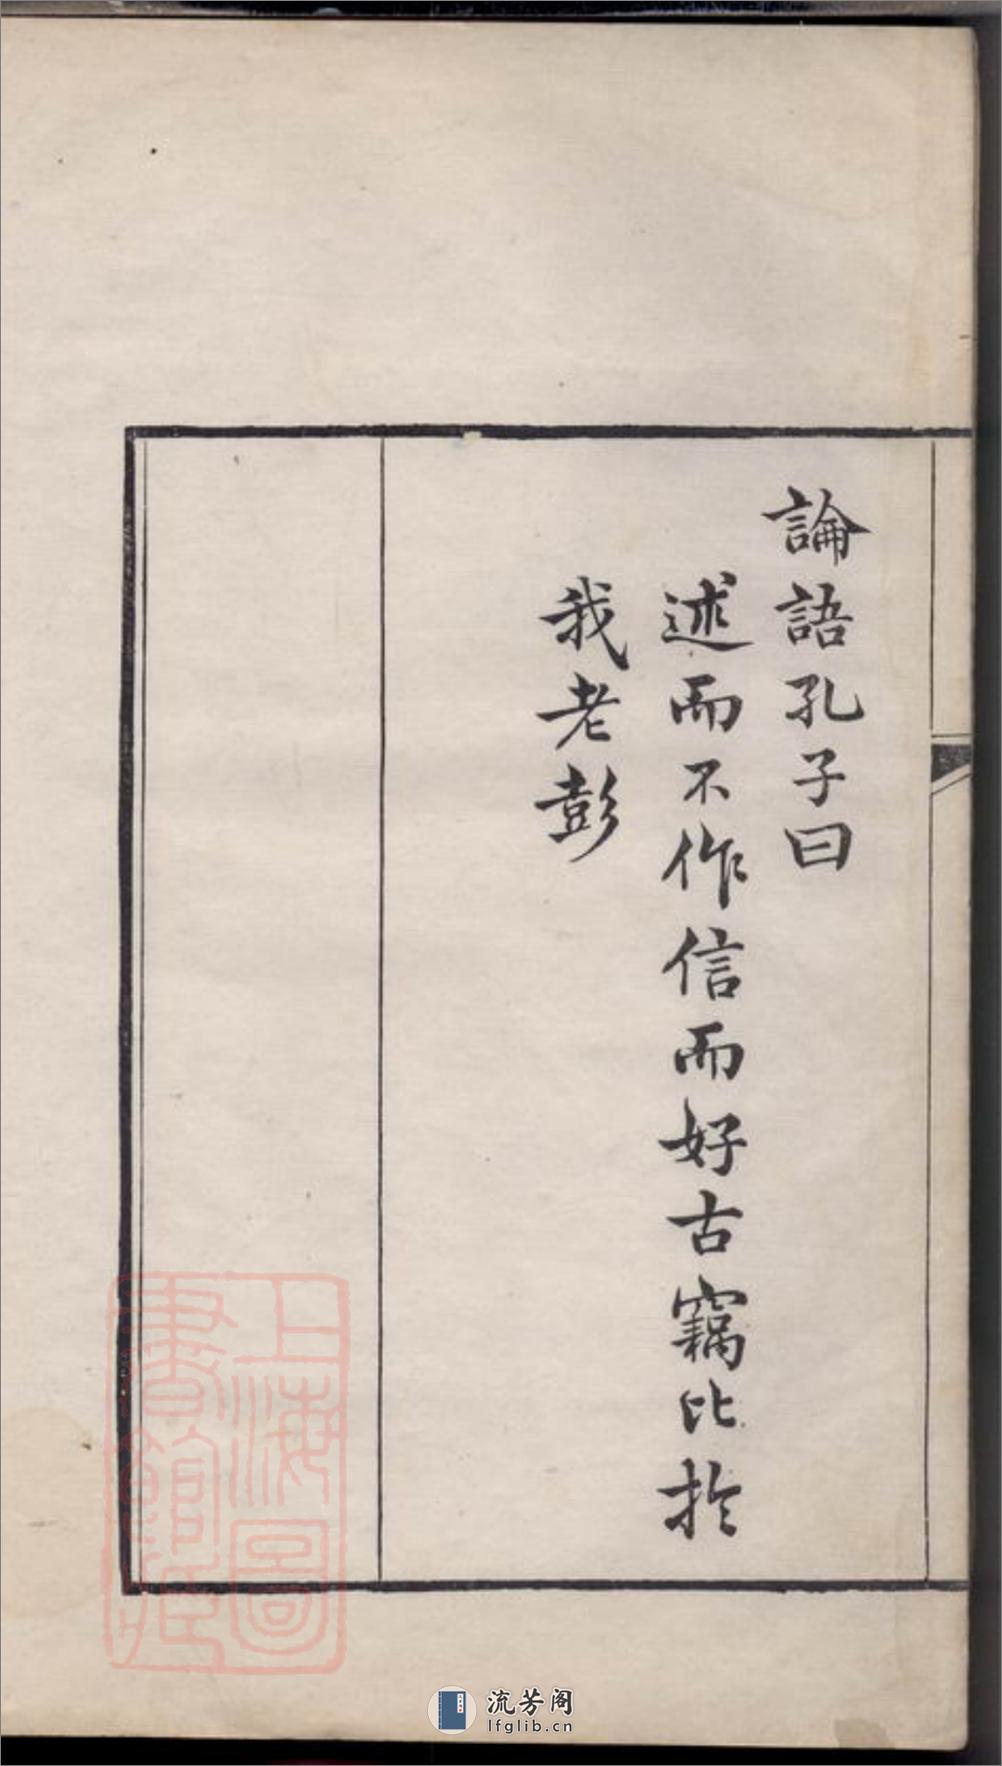 論語孔子曰
述而不作信而好古竊比於
我老彭
上海圖
書館藏
流芳阁
lfglib.cn